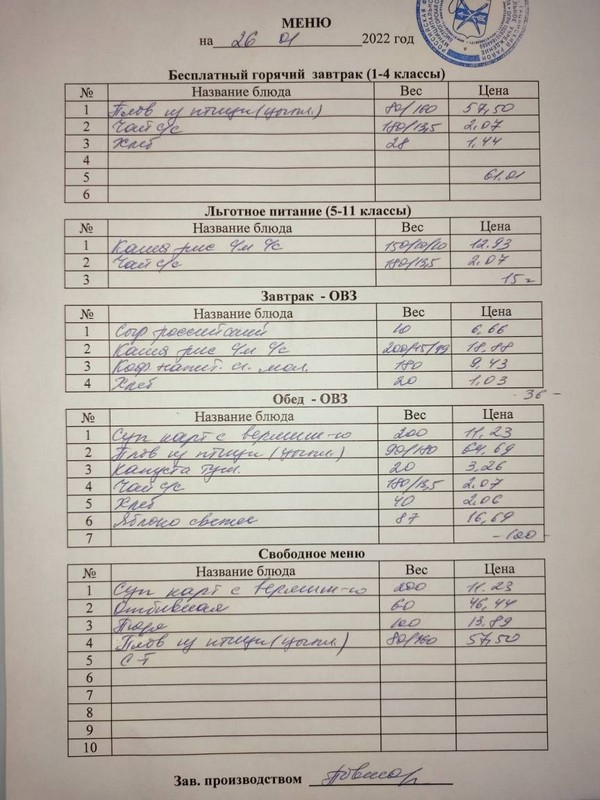 МЕНЮ
на 26 01 2022 год
Бесплатный горячий завтрак (1-4 классы)
№ Название блюда Вес Цена
1 Плов из птицы (цыпл.) 80/160 57,50
2 Чай с/с 180/13,5 2,07
3 Хлеб 28 1,44
4
5 61.01
6
Льготное питание (5-11 классы)
№ Название блюда Вес Цена
1 Каша рис 12.93
2 Чай с/с 180/13,5 2.07
3 15
Завтрак - ОВЗ
№ Название блюда Вес Цена
1 Сыр российский 10 6,66
2 Каша рис 18,88
3 Коф. напит. мол. 180 9,43
4 Хлеб 20 1,03
36 -
Обед - ОВЗ
№ Название блюда Вес Цена
1 Суп карт с вермиш-ю 200 11,23
2 Плов из птицы (цыпл.) 90/180 64,69
3 Капуста туш. 20 3,26
4 Чай с/с 180/13,5 2.07
5 Хлеб 40 2,06
6 Яблоко свежее 87 16,69
7 - 100 -
Свободное меню
№ Название блюда Вес Цена
1 Суп карт с вермиш-ю 200 11.23
2 Отбивная 60 46,44
3 Пюре 100 13.89
4 Плов из птицы (цыпл.) 80/160 57,50
5 С-Т
6
7
8
9
10
Зав. производством